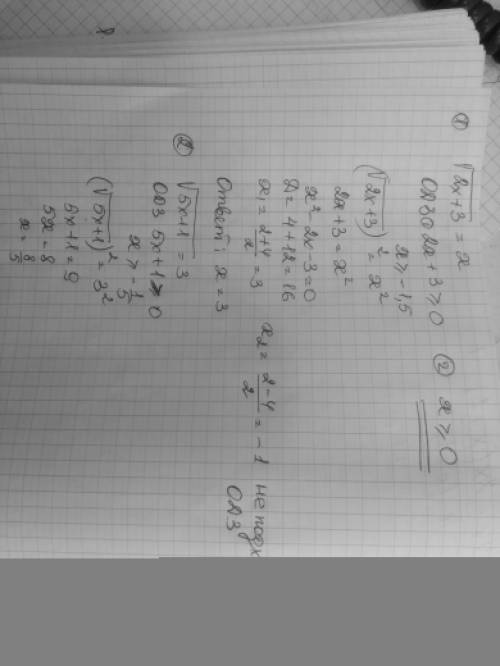 ① √2x+3 = x
ОДЗ① 2x+3 ≥ 0 ② x ≥ 0
x ≥ -1,5
(√2x+3)² = x²
2x+3 = x²
x² - 2x - 3 = 0
D = 4+12 = 16
x₁ = (2+4)/2 = 3 x₂ = (2-4)/2 = -1 не подх
ОДЗ
Ответ: x = 3
② √5x+1 = 3
ОДЗ 5x+1 ≥ 0
x ≥ -1/5
(√5x+1)² = 3²
5x+1 = 9
5x = 8
x = 8/5